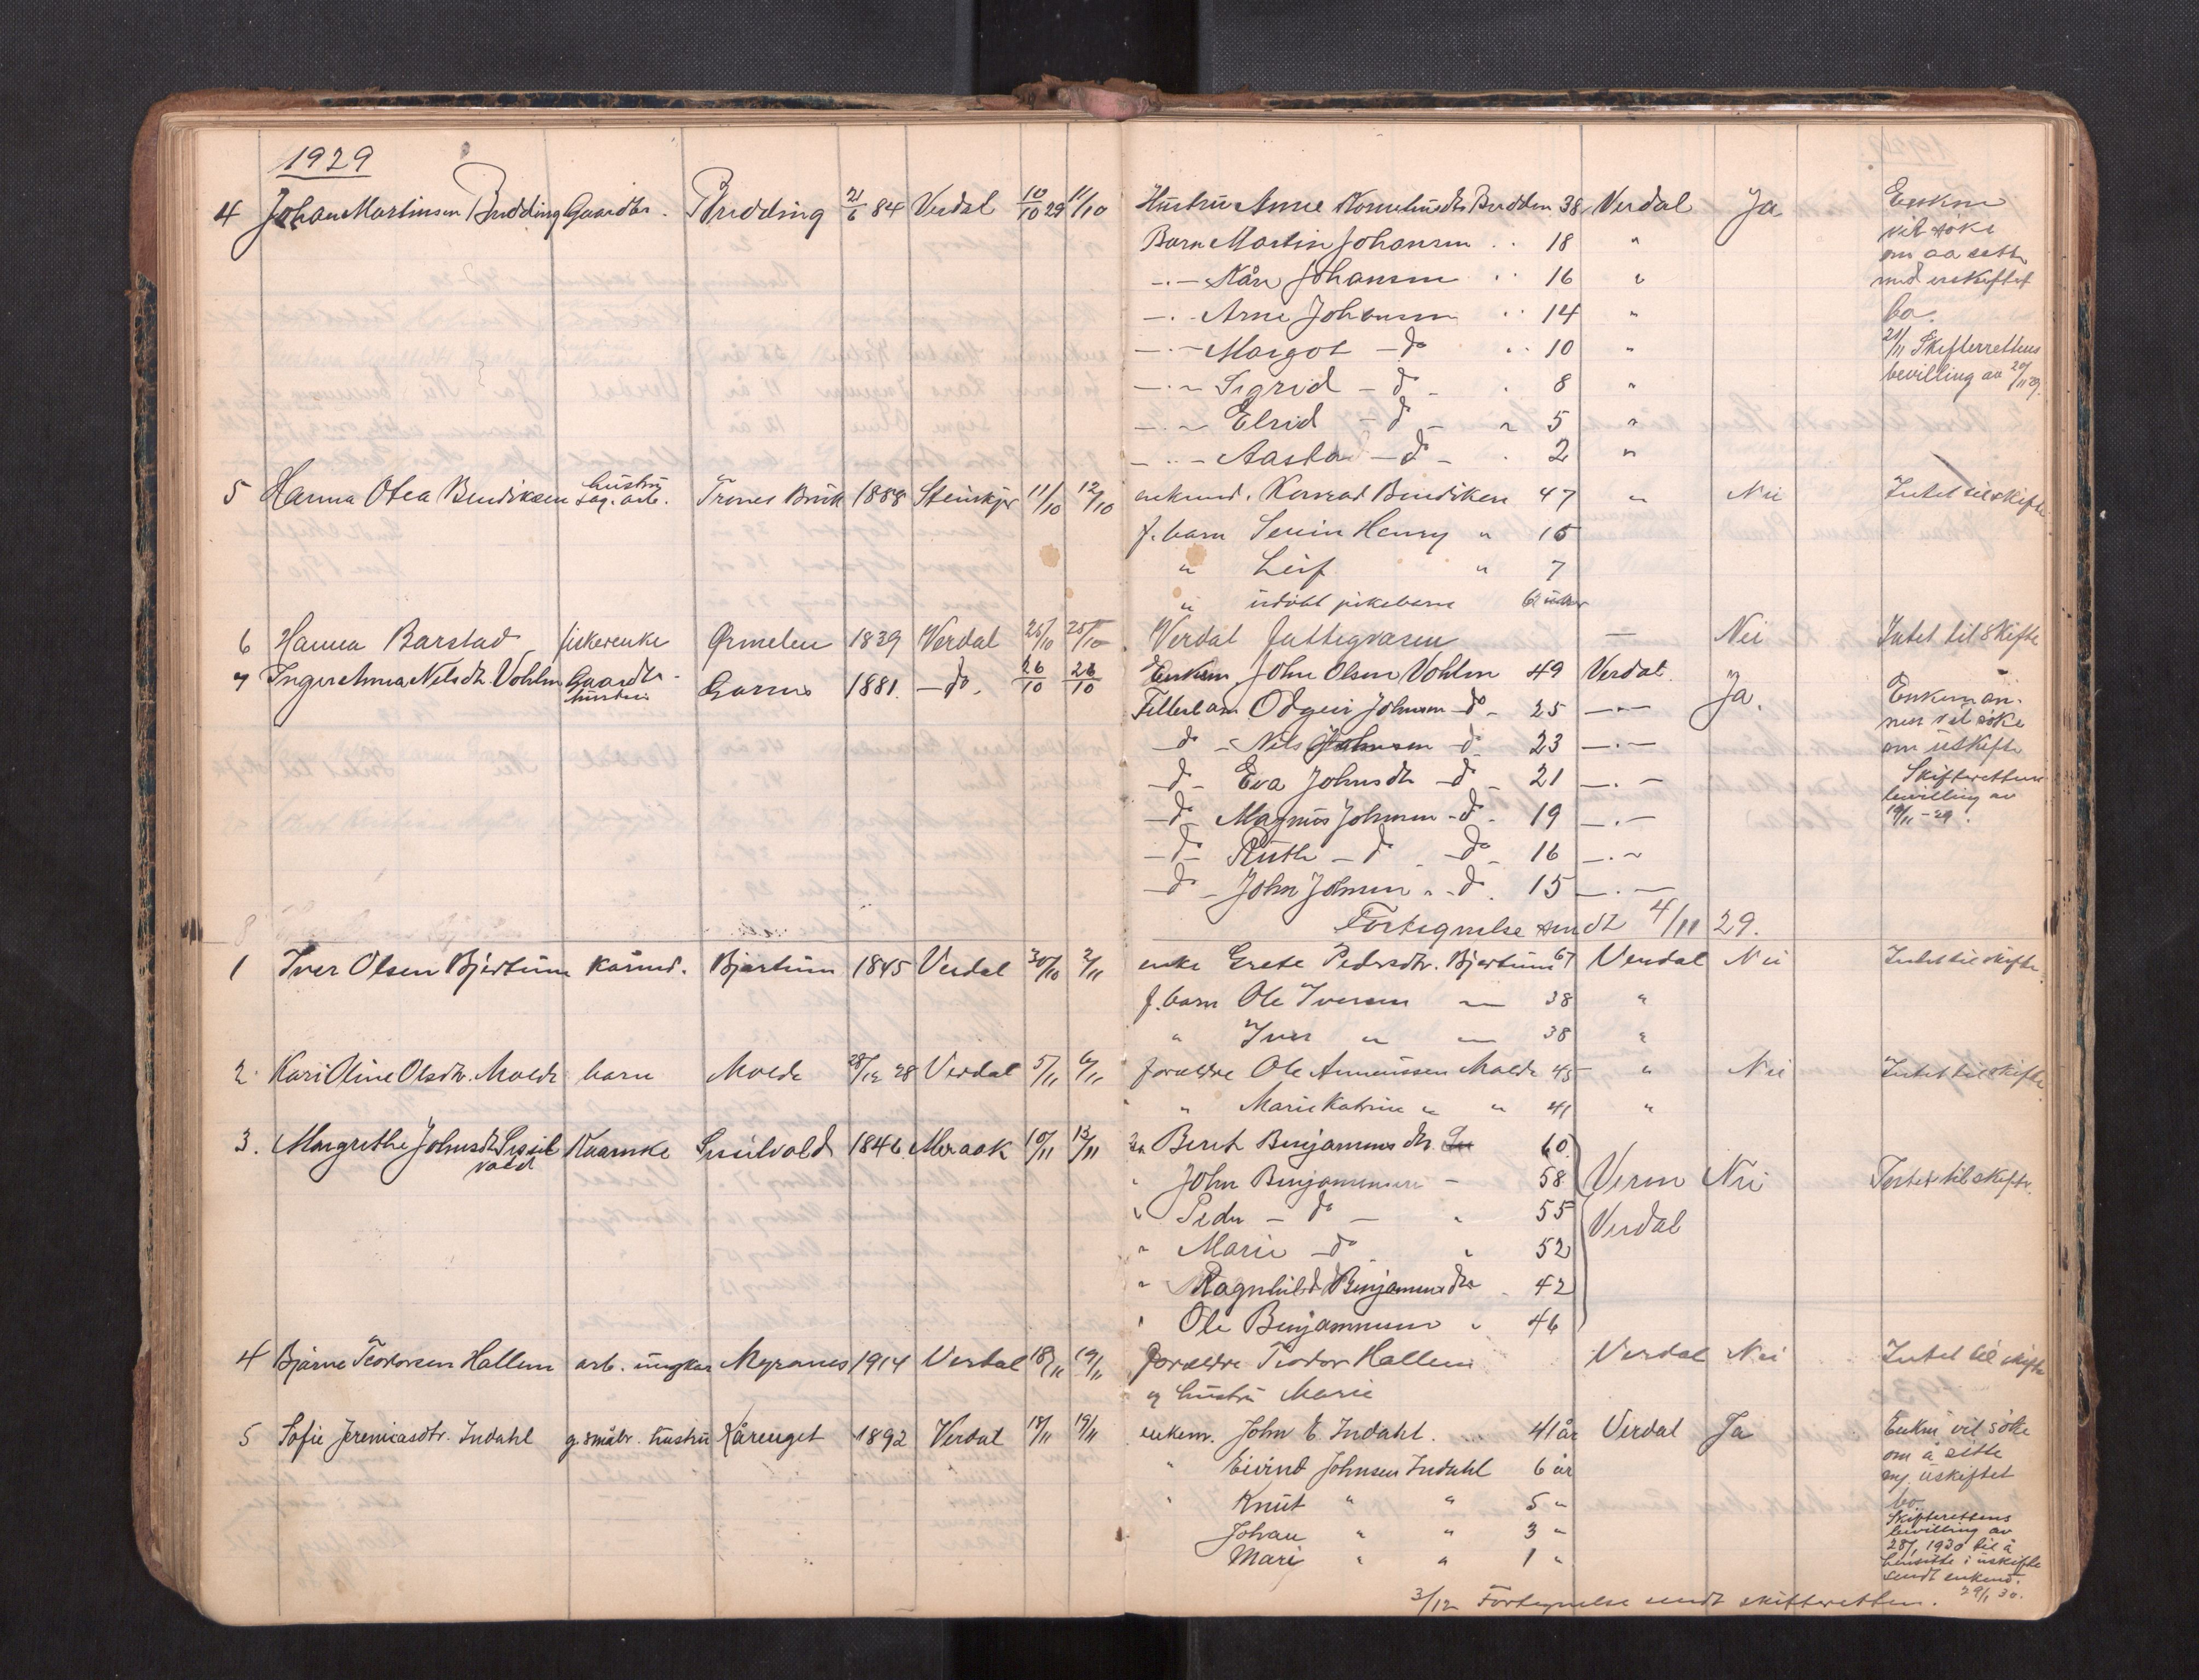 1929
4 Johan Martinsen Budding Gaardbr. Budding 21/6 84 Verdal 10/10 29 11/10 Hustru Anne Budden 38 Verdal Ja Enkem
Barn Martin Johansen 18 " vil søke
-.- Kåre Johansen 16 " om aa sitte
-.- Arne Johansen 14 " med uskiftet
-.- Margot - do 10 " bo.
-.- Sigrid - do - 8 " 21/11 Skifterettens
-.- Elrid - do - " 5 " bevilling av 20/11 29.
-.- Aasta - do - 2 "
5 Hanna Otea Bendiksen hustru sag. arb. Trones Bruk 1888 Steinkjer 11/10 12/10 enkemd. Konrad Bendiksen 47 " Nei Intet til skifte
f. barn Severin Henry " 15
" Leif " 7
" udøbt pikebarn 6 uker
6 Hanna Barstad fiskerenke Ørmelen 1839 Verdal 25/10 25/10 Verdal fattigvæsen — Nei Intet til skifte
7 Inger Anna Nilsdtr. Vohlen Gaardbr. hustru Garnes 1881. - do. 26/10 26/10 Enkem. John Olsen Vohlen 49 Verdal. Ja. Enkeman-
Fellesbarn Odgeir Johnsen - do - 25 -.- nen vil søke
do - Nils Johnsen - do 23 -.- om uskifte
- do - Eva Johnsdtr - do - 21 -.- Skifterettens
- do - Magnus Johnsen - do - 19 -.- bevilling av
- do - Ruth - do - do - 16 -.- 19/11 - 29.
- do - John Johnsen - do. 15 -.-
Fortegnelse sendt 4/11 29.
8
1 Iver Olsen Bjertum kårmd. Bjartum 1845 Verdal 30/10 2/11 enke Grete Pedersdtr. Bjertum 67 Verdal Nei Intet til skifte
f. barn Ole Iversen — 38 "
" Iver " — 38 "
2. Kari Oline Olsdtr. Molde barn Molde 28/12 28 Verdal 5/11 6/11 forældre Ole Anneussen Molde 45 " Nei Intet til skifte
" Marie Katrine " " 41 "
3. Margrethe Johnsdtr Sissilvold Kaarnke Sissilvold 1846. Meraak 10/11 13/11 Berit Benjaminsdtr. 60
" John Benjaminsen - 58 Verm Nei Intet til skifte
" Peder - do - " 55 Verdal
" Marie - do " 52
" Ragnhild Benjaminsdtr. 42
" Ole Benjaminsen " 46
4 Bjarne Teodorsen Hallem arb. ungkar Myranes 1914 Verdal 18/11 19/11 forældre Teodor Hallem Verdal Nei Intet til skifte
og hustru Marie
5 Sofie Jeremiasdtr. Indahl g. småbr. hustru Kårenget 1892 Verdal 18/11 19/11 enkem. John E. Indahl. 41 år Verdal Ja Enkm vil søke
" Eivind Johnsen Indahl 6 år om å sitte
" Knut " " 5 " m/ uskiftet
Johan " " 3 " bo.
Mari " " 1 " Skifterettens
bevilling av
28/1 1930 til å
hensitte i uskifte
sendt enkemd.
29/1 30.
3/12 Fortegnelse sendt skifteretten.